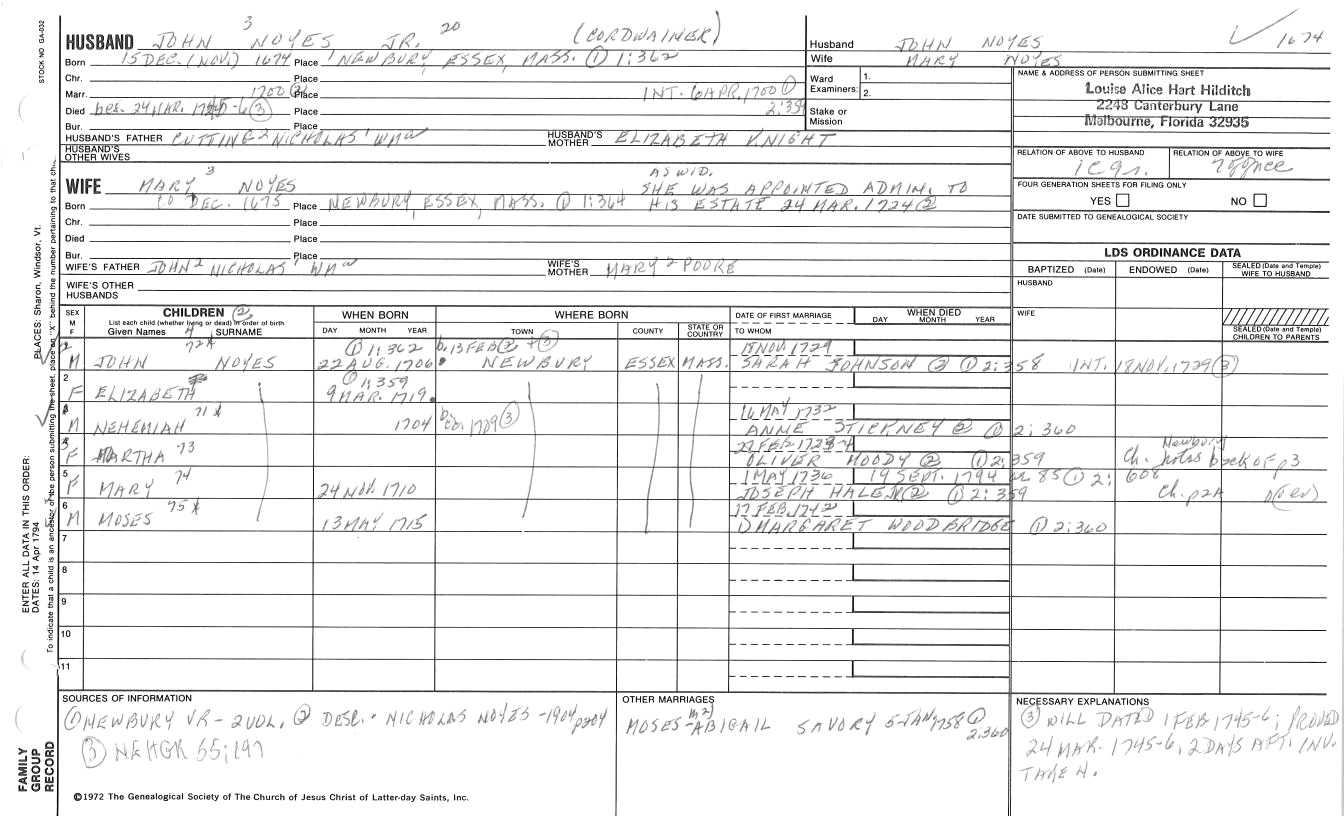 STOCK NO. GA-032
HUSBAND JOHN 3 NOYES JR. 20 (CORDWAINER)
Born 15 DEC. (NOV.) 1674 Place NEWBURY, ESSEX, MASS. ① 1:362
Chr. Place
Marr. 1700 ② Place INT. 6 APR. 1700 ①
Died bef. 24 MAR. 1745-6 ③ Place 2:359
Bur. Place
HUSBAND'S FATHER CUTTING 2 NICHOLAS 1 WM HUSBAND'S MOTHER ELIZABETH KNIGHT
HUSBAND'S OTHER WIVES
Husband JOHN NOYES
Wife MARY NOYES
✓ 1674
Ward Examiners: 1.
2.
Stake or Mission
NAME & ADDRESS OF PERSON SUBMITTING SHEET
Louise Alice Hart Hilditch
2248 Canterbury Lane
Melbourne, Florida 32935
RELATION OF ABOVE TO HUSBAND RELATION OF ABOVE TO WIFE
FOUR GENERATION SHEETS FOR FILING ONLY
YES NO
DATE SUBMITTED TO GENEALOGICAL SOCIETY
WIFE MARY 3 NOYES AS WID. SHE WAS APPOINTED ADMIN. TO
Born 10 DEC. 1675 Place NEWBURY, ESSEX, MASS. ① 1:364 HIS ESTATE 24 MAR. 1724 ②
Chr. Place
Died Place
Bur. Place
WIFE'S FATHER JOHN 2 NICHOLAS 1 WM WIFE'S MOTHER MARY 2 POORE
WIFE'S OTHER HUSBANDS
LDS ORDINANCE DATA
BAPTIZED (Date) ENDOWED (Date) SEALED (Date and Temple) WIFE TO HUSBAND
HUSBAND
WIFE
SEALED (Date and Temple) CHILDREN TO PARENTS
SEX M F CHILDREN ② WHEN BORN WHERE BORN DATE OF FIRST MARRIAGE WHEN DIED
List each child (whether living or dead) in order of birth
Given Names 4 SURNAME DAY MONTH YEAR TOWN COUNTY STATE OR COUNTRY TO WHOM DAY MONTH YEAR
2 72 ① 1:362 b. 13 FEB ② + ③ 18 NOV. 1729
M JOHN NOYES 22 AUG. 1706 NEWBURY ESSEX MASS. SARAH JOHNSON ② ① 2:358 INT. 18 NOV. 1729 ③
2 ① 1:359
F ELIZABETH 9 MAR. 1719
71 16 MAY 1732
M NEHEMIAH 1704 b. co. 1709 ③ ANNE STICKNEY ② ① 2:360
3 73 27 FEB 1723-4 Newbury
F MARTHA OLIVER MOODY ② ① 2:359 Ch. notes back of p3
5 74 1 MAY 1736 19 SEPT. 1794 æ 85 ① 2: 608
F MARY 24 NOV. 1710 JOSEPH HALE ② ① 2:359 Ch. p2A
6 75 17 FEB. 1742
M MOSES 13 MAY 1715 ① MARGARET WOODBRIDGE ① 2:360
7
8
9
10
11
SOURCES OF INFORMATION
① NEWBURY VR - 2 VOL. ② DESC. - NICHOLAS NOYES - 1904 p204
③ NEHGR 55:197
OTHER MARRIAGES
MOSES m 2) ABIGAIL SAVORY 5 JAN 1758 ①
2:360
NECESSARY EXPLANATIONS
③ WILL DATED 1 FEB 1745-6; PROVED
24 MAR. 1745-6, 2 DAYS AFT. INV.
TAKEN.
©1972 The Genealogical Society of The Church of Jesus Christ of Latter-day Saints, Inc.
ENTER ALL DATA IN THIS ORDER:
DATES: 14 Apr 1794
PLACES: Sharon, Windsor, Vt.
To indicate that a child is an ancestor of the person submitting the sheet, place an "X" behind the number pertaining to that child.
FAMILY GROUP RECORD